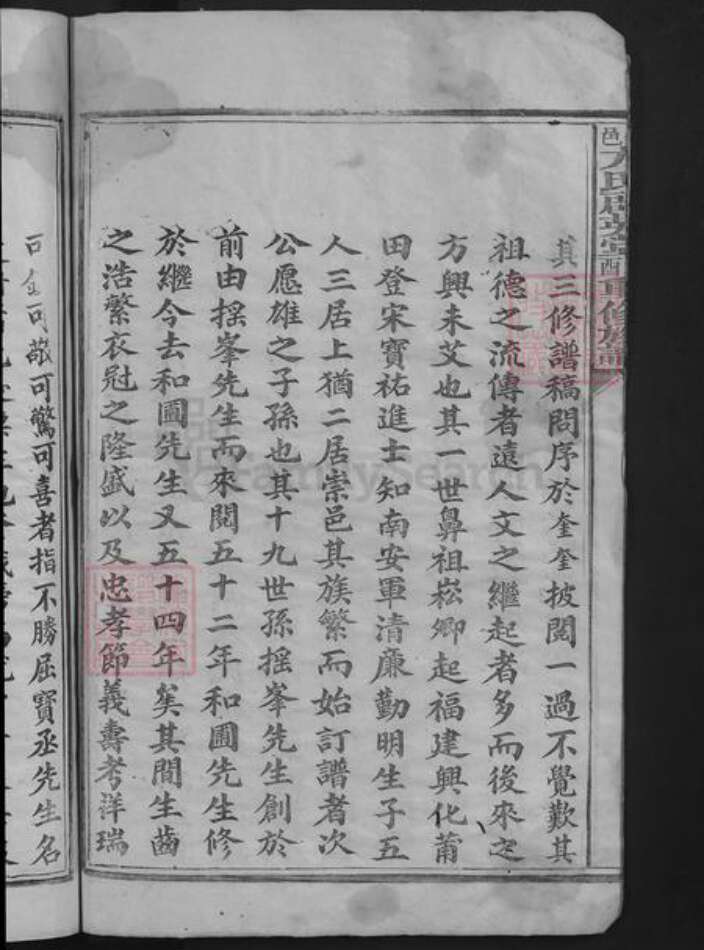 其三修譜稿問序於奎奎披閱一過不覺歎其
祖德之流傳者遠人文之繼起者多而後來之
方興未艾也其一世鼻祖崧卿起福建興化莆
田登宋寶祐進士知南安軍清廉勤明生子五
人三居上猶二居崇邑其族繁而始訂譜者次
公愿雄之子孫也其十九世孫揺峯先生創於
前由揺峯先生而來閱五十二年和圃先生修
於繼今去和圃先生又五十四年矣其間生齒
之浩繁衣冠之隆盛以及忠孝節義壽考洋瑞
可敬可驚可喜者指不勝屈寶丞先生名
FamilySearch